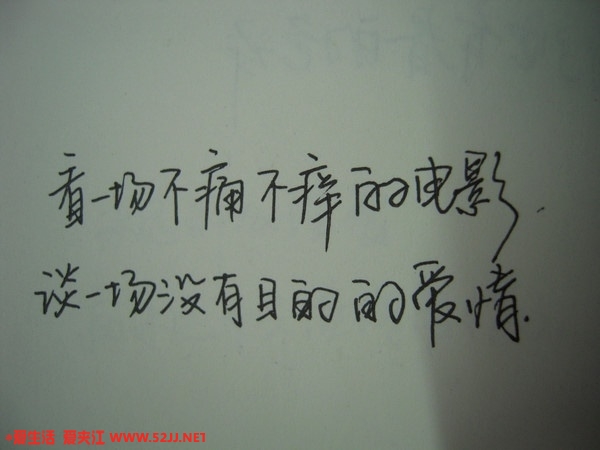 看一场不痛不痒的电影.
谈一场没有目的的爱情.
爱生活 爱夹江 WWW.52JJ.NET